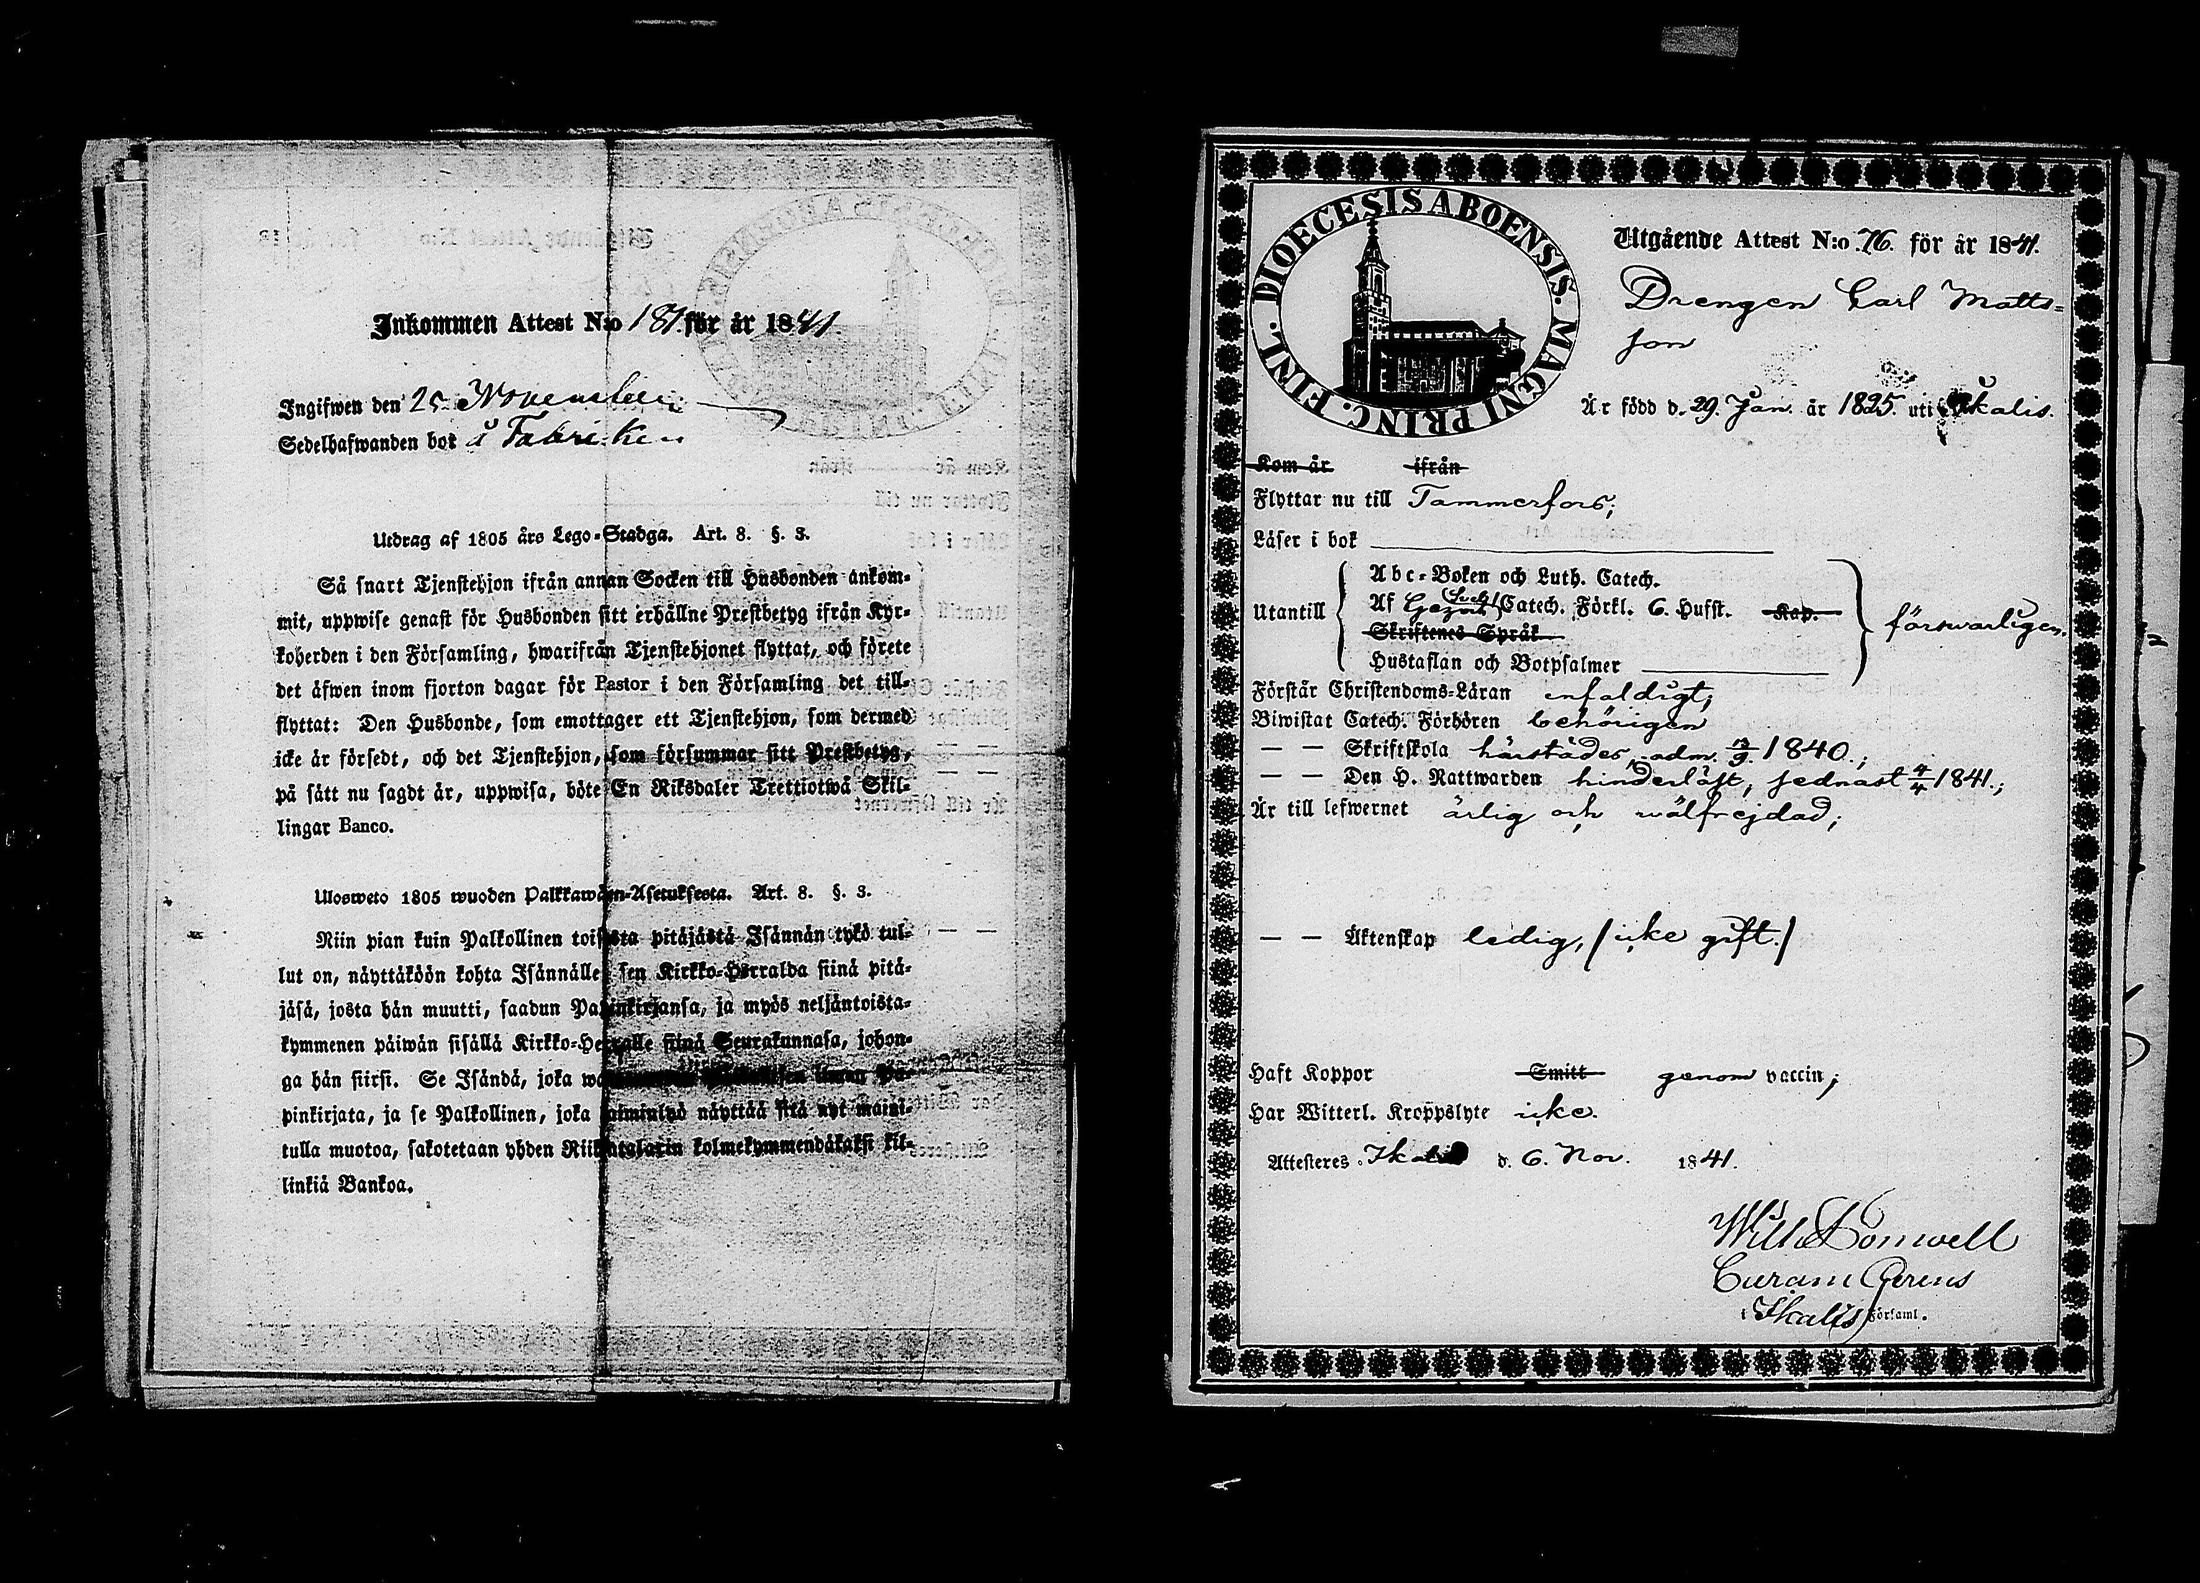 Inkommen Attest N:o 181. för år 1841.
Ingifwen den 25 November
Sedelhafwanden bor å Fabriken
Utdrag af 1805 års Lego-Stadga. Art. 8. §. 3.
Så snart Tjenstehjon ifrån annan Socken till Husbonden ankom-
mit, uppwise genast för Husbonden sitt erhållne Prestbetyg ifrån Kyr-
koherden i den Församling, hwarifrån Tjenstehjonet flyttat, och förete
det äfwen inom fjorton dagar för Pastor i den Församling det till-
flyttat: Den Husbonde, som emottager ett Tjenstehjon, som dermed
icke är försedt, och det Tjenstehjon, som försummar sitt Prestbetyg,
på sätt nu sagdt är, uppwisa, böte En Riksdaler Trettiotwå Skil-
lingar Banco.
Ulosweto 1805 wuoden Palkkawäen-Asetuksesta. Art. 8. §. 3.
Niin pian kuin Palkollinen toisesta pitäjästä Isännän tykö tul-
lut on, näyttäköön kohta Isännälle sen Kirkko-Herralda siinä pitä-
jäsä, josta hän muutti, saadun Papinkirjansa, ja myös neljäntoista-
kymmenen päiwän sisällä Kirkko-Herralle siinä Seurakunnasa, johon-
ga hän siirsi. Se Isändä, joka
pinkirjata, ja se Palkollinen, joka laiminlyö näyttää sitä nyt maini-
tulla muotoa, sakotetaan yhden Riikintalarin kolmekymmendäkaksi kil-
linkiä Bankoa.
DIOECESIS ABOENSIS. MAGNI PRINC. FINL.
Utgående Attest N:o 76. för år 1841.
Drengen Carl Matts-
son
Är född d. 29. Jan. år 1825. uti Ikalis.
Kom år ifrån
Flyttar nu till Tammerfors;
Läser i bok
Utantill
Abc-Boken och Luth. Catech.
Af Sveb. Catech. Förkl. 6. Hufst. Kap.
Skriftenes Språk
Hustaflan och Botpsalmer
försvarligen.
Förstår Christendoms-Läran enfaldigt;
Biwistat Catech. Förhören behörigen
— — Skriftskola härstädes, adm. 13/9. 1840.;
— — Den H. Nattwarden hinderlöst, sednast 4/4 1841.;
Är till lefwernet ärlig och wälfrejdad;
— — Äktenskap ledig, /icke gift./
Haft Koppor Smitt genom vaccin;
Har Witterl. Kroppslyte icke.
Attesteres Ikalis d. 6. Nov. 1841.
Wilh.
Curam Gerens
i Ikalis Församl.